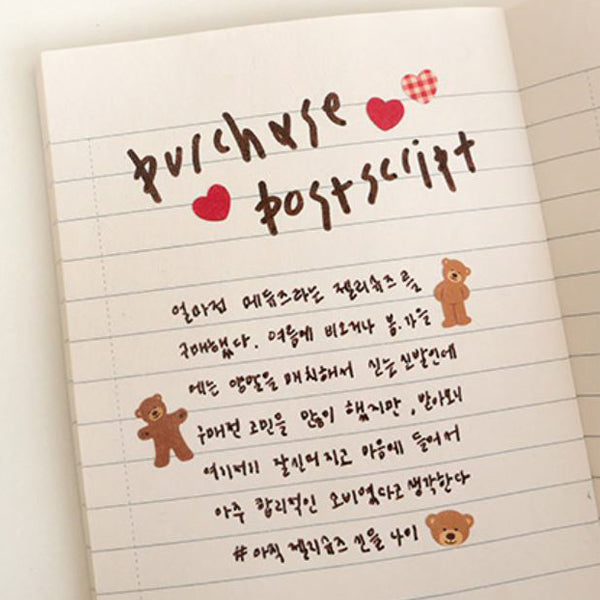 purchase
postscript
얼마전 메듀즈라는 젤리슈즈를
구매했다. 여름에 비오거나 봄.가을
에는 양말을 매치해서 신는 신발인데
구매전 고민을 많이 했지만, 받아보니
여기저기 잘신어지고 마음에 들어서
아주 합리적인 소비였다고 생각한다
#아직젤리슈즈 신을나이